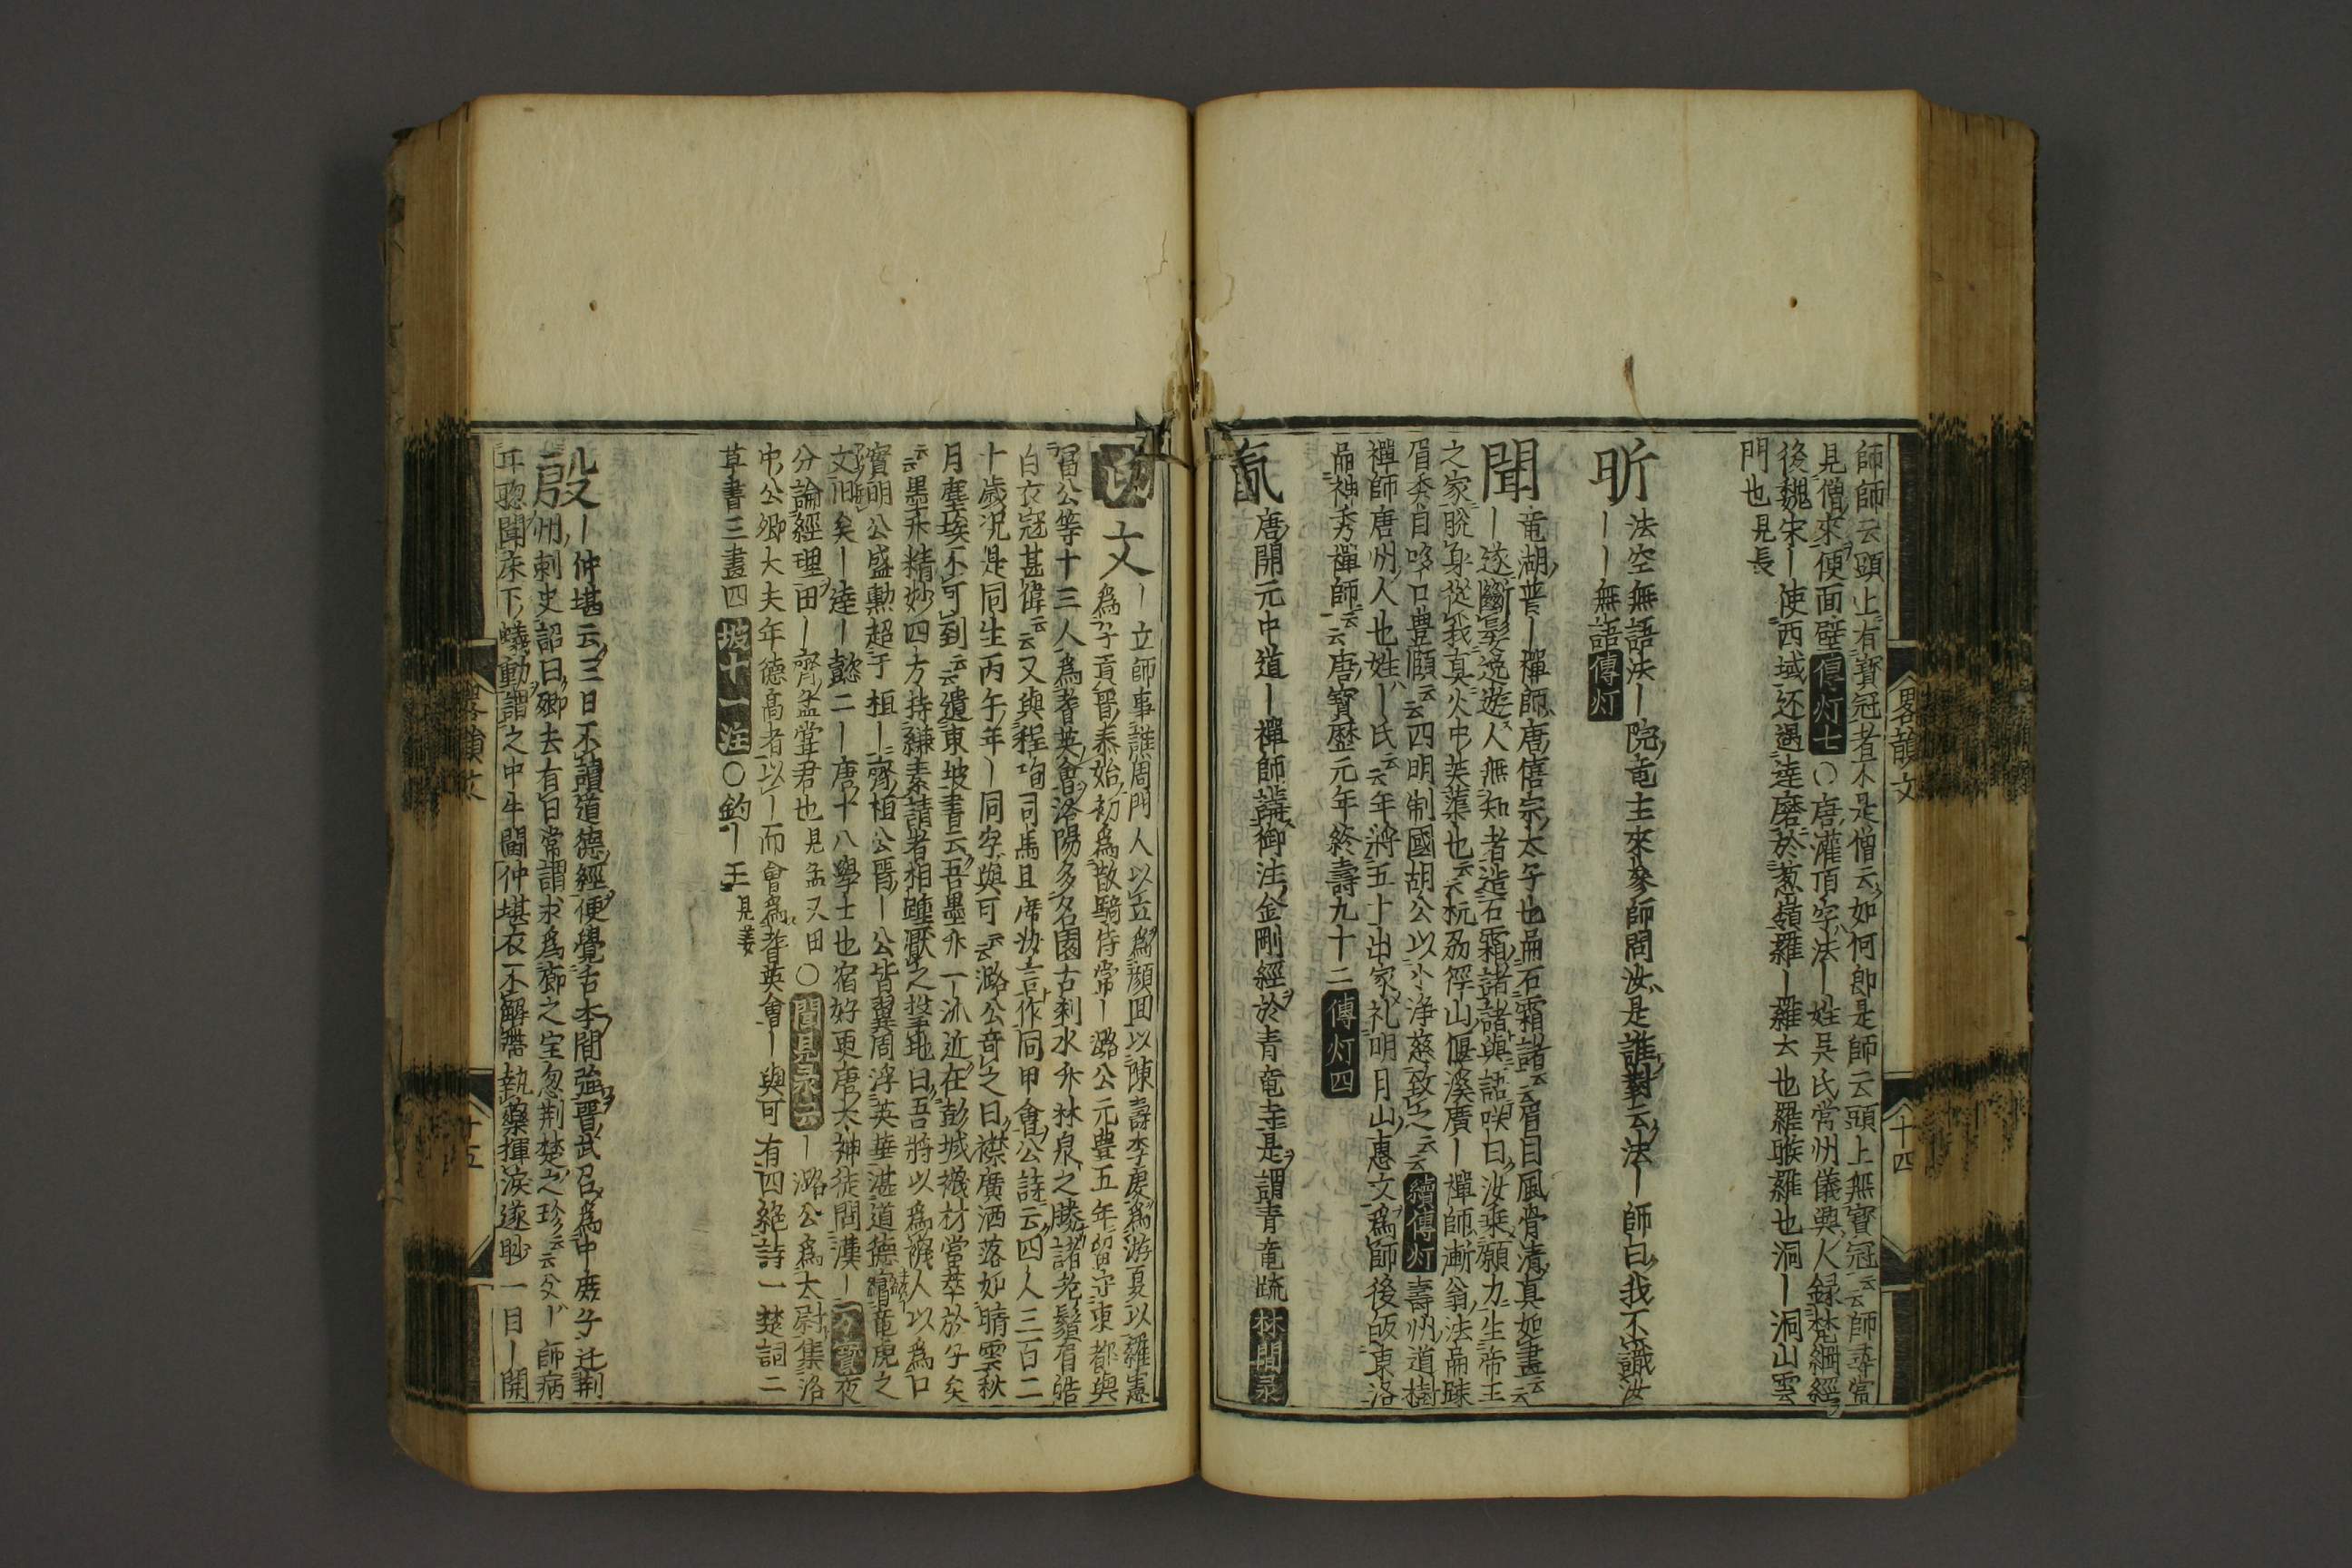 師師云頭上有寳冠者不是僧云如何即是師云頭上無寳冠云云師尋常
見僧來便面壁傳灯七〇唐灌頂字法ー姓吳氏常州儀興人録梵綱經
後魏宋ー使西域还遇達磨於葱嶺羅ー羅云也羅睺羅也洞ー洞山雲
門也見長
昕
法空無語法ー院竜主來參師問汝是誰對云法ー師曰我不識汝
ーー無語傳灯
聞
竜湖普ー禪師唐僖宗太子也扁石霜諸云眉目風骨清真如畫云
ー遂斷髮逸遊人無知者造石霜諸諸與語咲曰汝乘願力生帝王
之家脫身從我真火中芙蕖也云云杭刕俘山偃溪廣ー禪師漸翁法扁
眉秀目哆口豊頤云云四明制國胡公以小浄慈致之云云續傳灯壽州道樹
禪師唐州人也姓ー氏云云年將五十出家礼明月山惠文為師後皈東洛
扁神秀禪師云云唐寳歴元年終壽九十二傳灯四
唐開元中道ー禪師
御注金剛經於青竜寺是謂青竜疏林間录
畧韻文
十四
文
ー立師事譙周門人以立為顔回以陳壽李虔為游夏以羅憲
為子貢晉泰始初為散騎侍常ー潞公元豊五年留守東都與
冨公等十三人為耆英會洛陽多名園古刹水竹林泉之勝諸老鬚眉皓
白衣冠甚偉云云又與程珦司馬且席汝言作同甲會公詩云四人三百二
十歲況是同生丙午年ー同字與可云潞公奇之曰襟廣洒落如晴雲秋
月塵埃不可到云云遺東坡書云吾墨竹一派近在彭城襪材當萃於子矣
云墨竹精妙四方持縑素請者相踵厭之投地曰吾將以為襪人以為口
實明公盛勲超于桓ー齊桓公晋ー公皆翼周浮英華湛道德竜虎之
文旧矣ー達ー懿二ー唐十八學士也宿好更唐太神徒問漢ー
分論經理田ー齊孟嘗君也見孟又田〇聞見录云ー潞公為太尉集洛
中公卿大夫年德高者以ー而會為耆英會ー與可有四絶詩一楚詞二
草書三畫四坡十一注〇釣ー王見姜
殷
ー仲堪云三日不讀道德經便覺舌本間強晋武召為中庶子迁荆
州刺史詔曰卿去有日常謂求為廊之宝忽荆楚之珍云云父ー師病
耳聡聞床下蟻動謂之中牛閗仲堪衣不解帶執藥揮淚遂眇一目ー開
十五